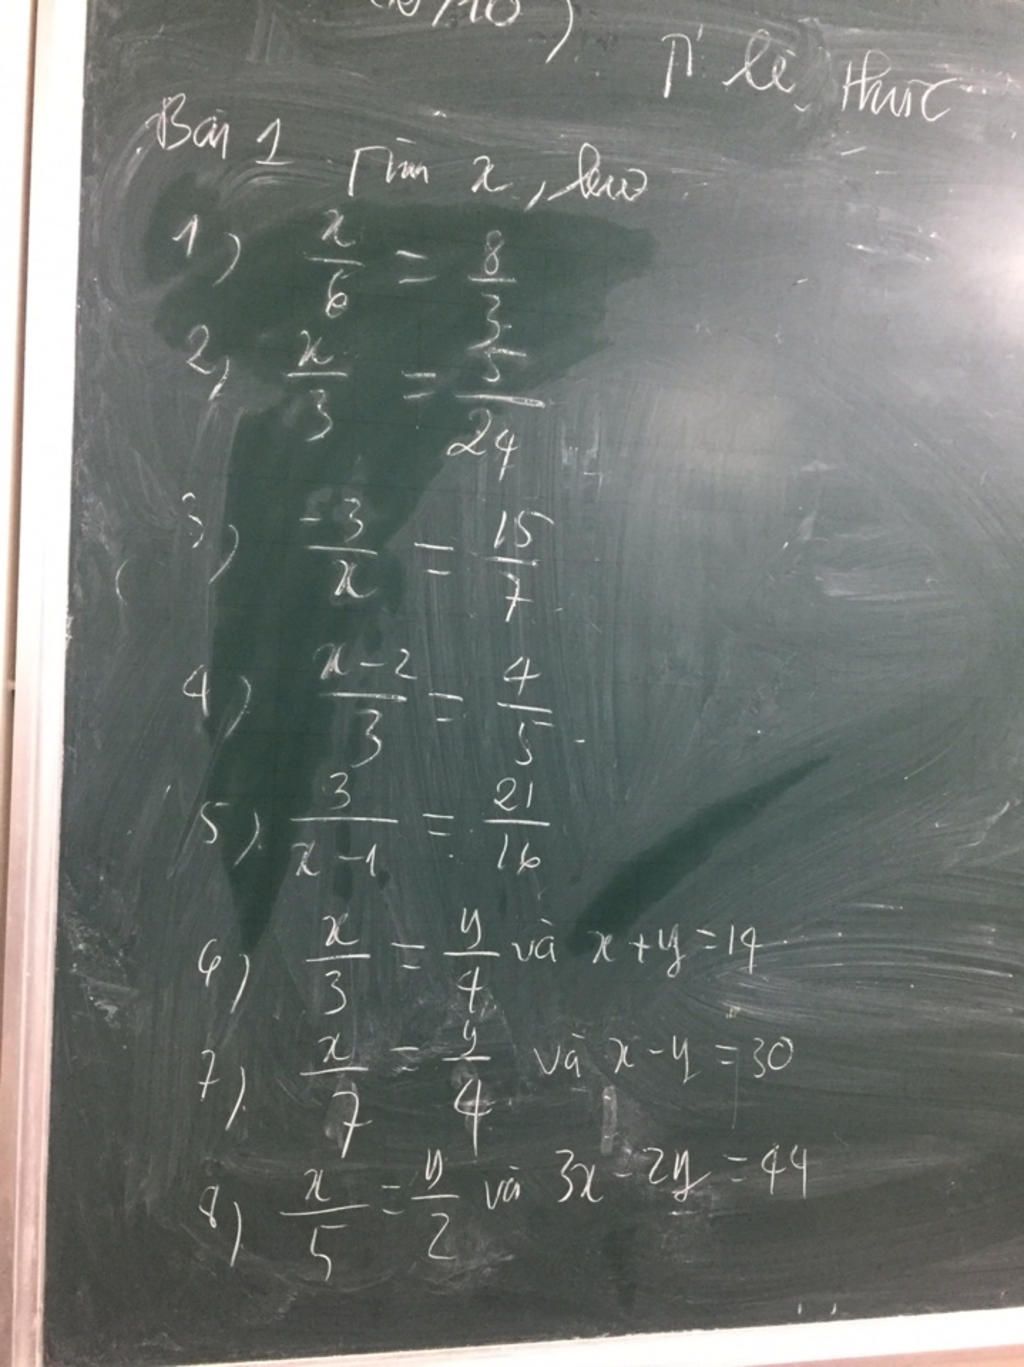 Tỉ lệ thức
Bài 1 Tìm x, biết
1) x/6 = 8/3
2) x/3 = 5/24
3) -3/x = 15/7
4) x-2/3 = 4/5
5) 3/x-1 = 21/16
6) x/3 = y/4 và x+y=14
7) x/7 = y/4 và x-y=30
8) x/5 = y/2 và 3x-2y=44